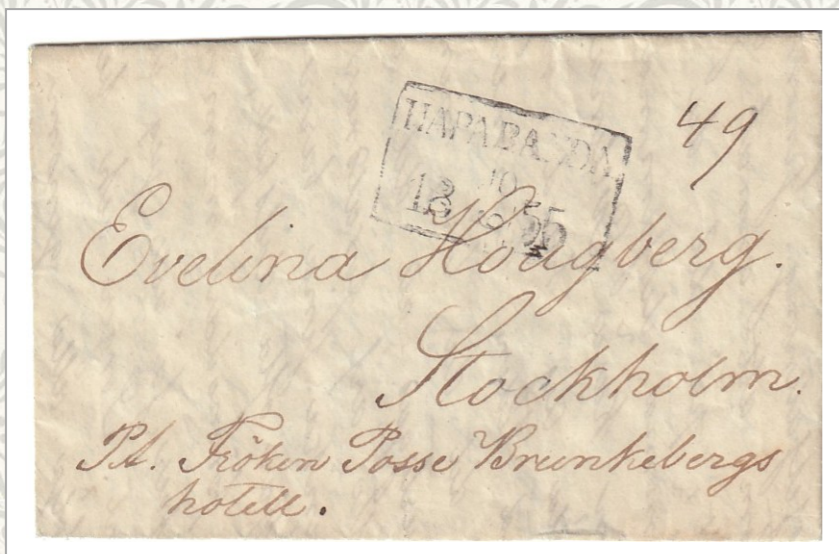 HAPARANDA
10
18 55
9
49
Evelina Hoagberg.
Stockholm.
Pt. Fröken Posse Brunkebergs
hotell.